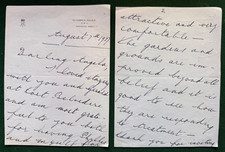 August
Darling Angela
I loved staying
with you and
at Fort Belvedere
and am most grate-
ful to you both
for having
and
2
attractive and very
comfortable –
the gardens and
grounds are im-
proved beyond
belief and it is
good to see how
they are responding
to treatment –
thank you for making